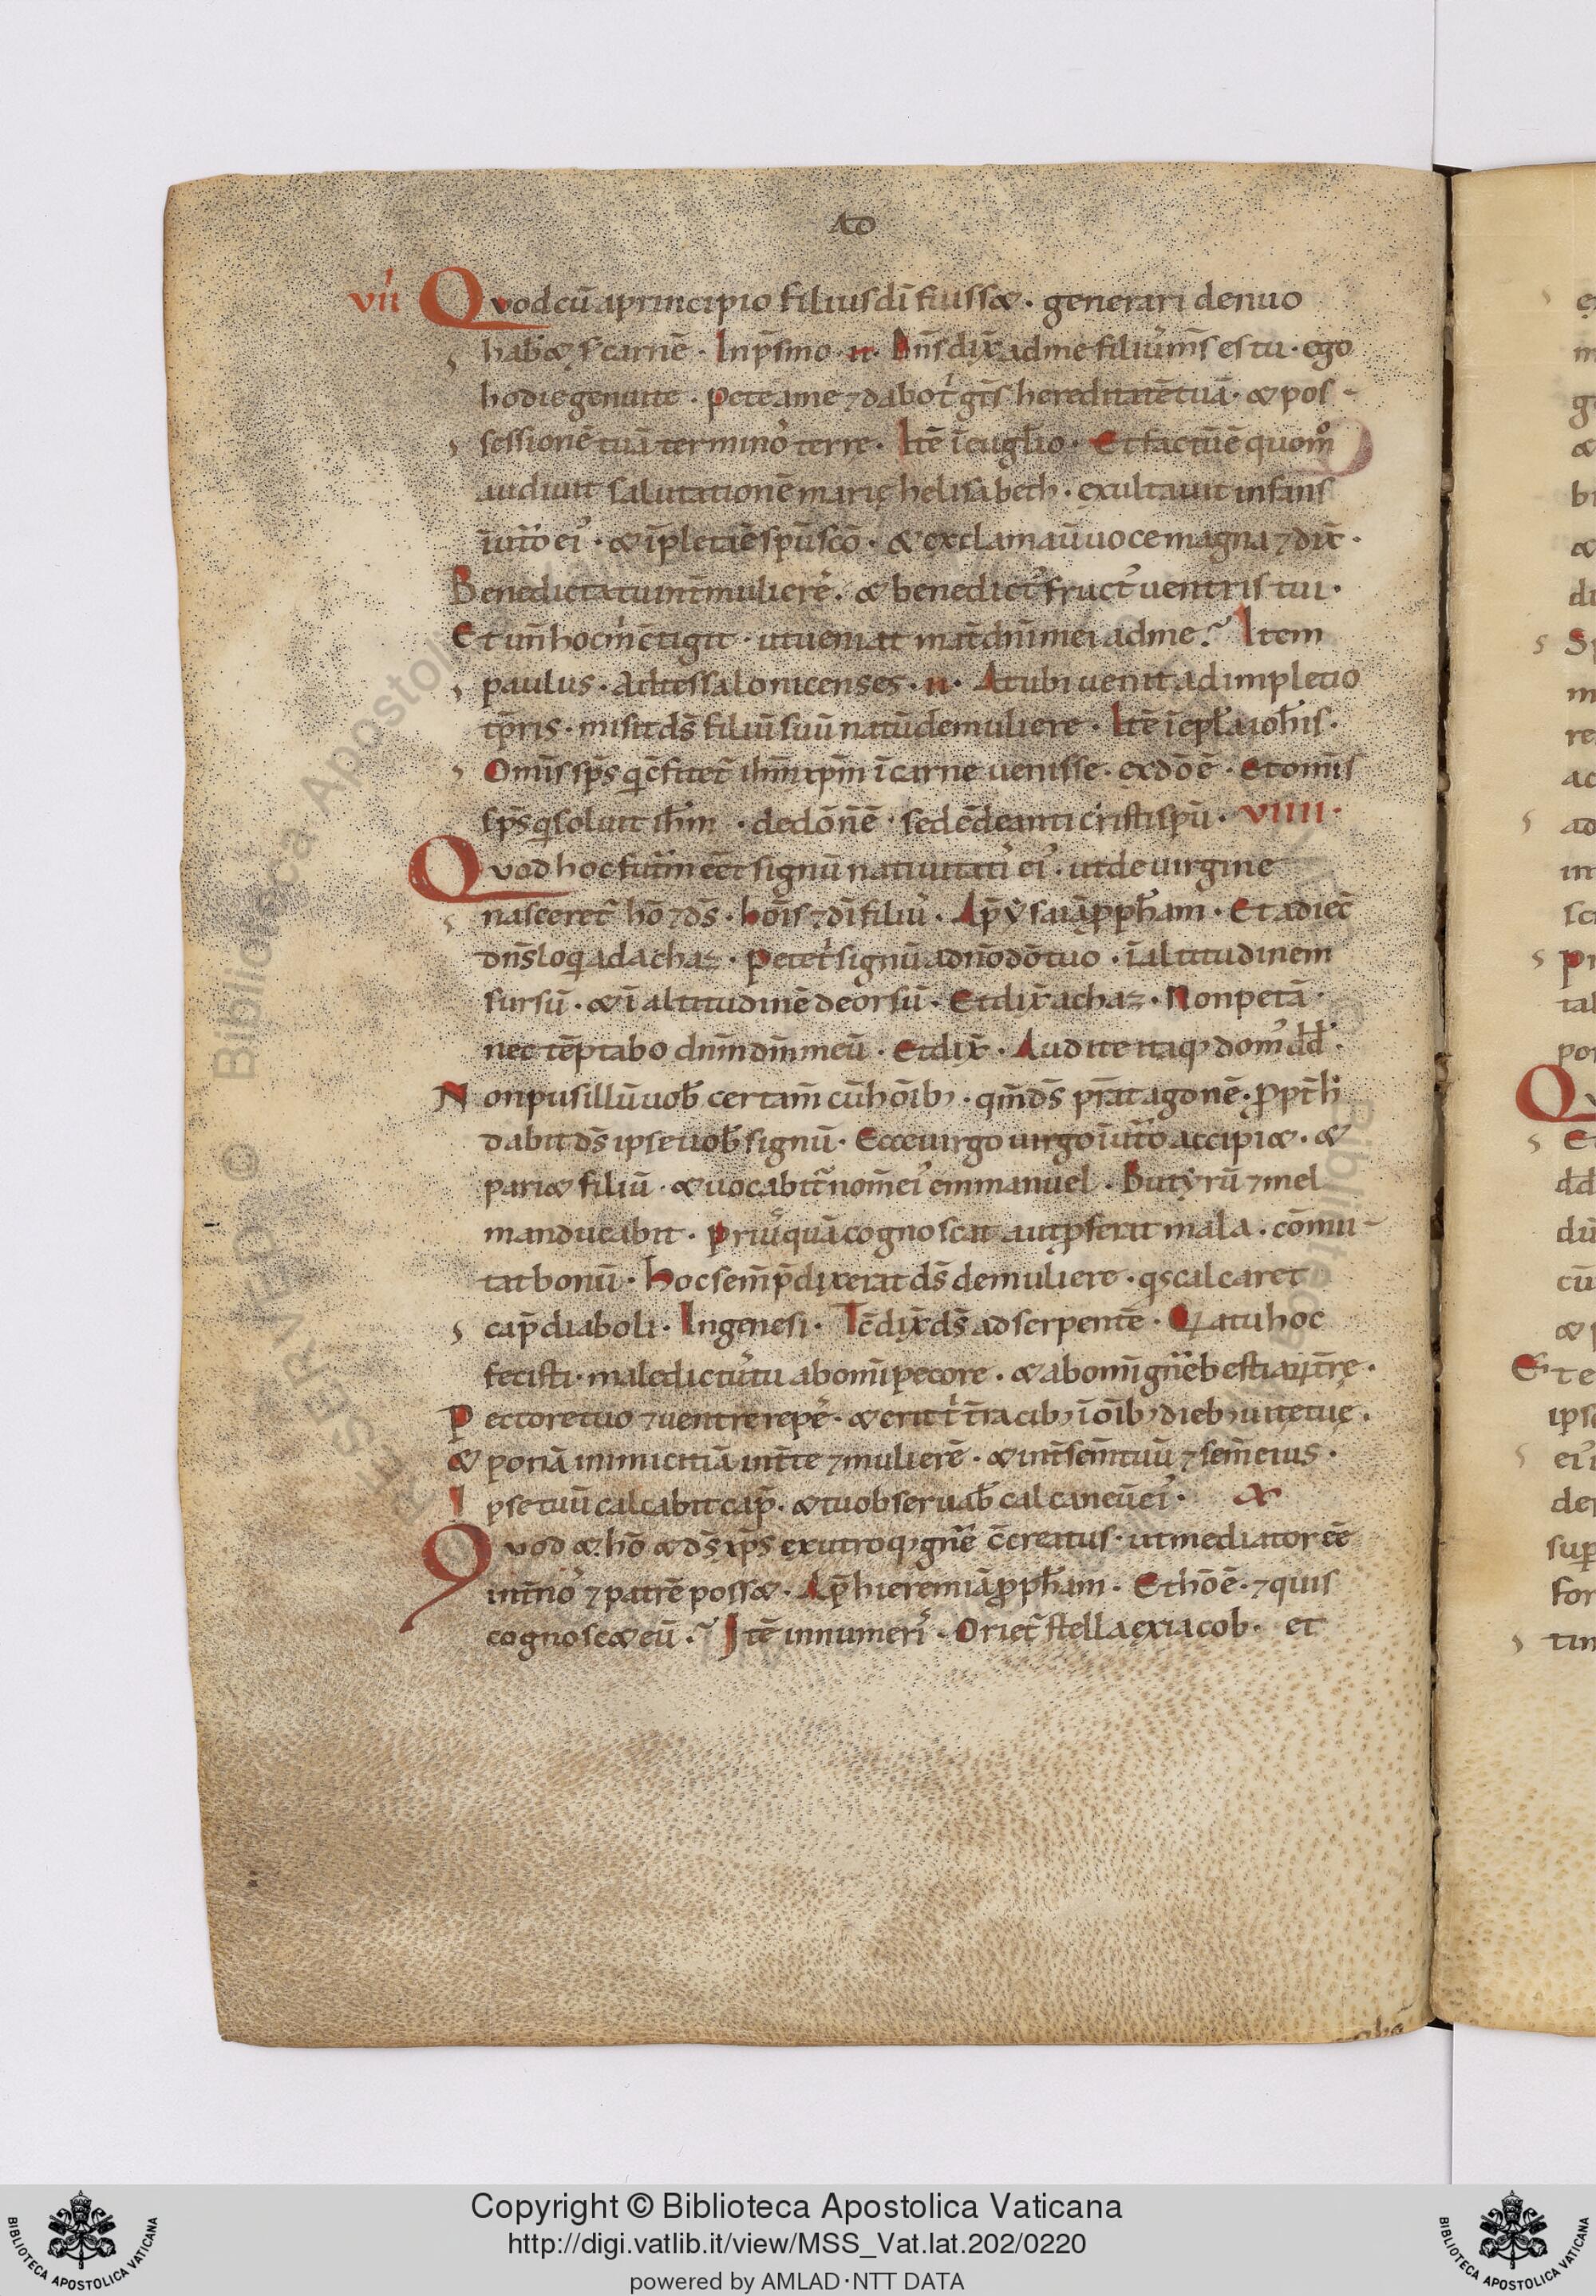 AD
VII Quod cū a principio filius dī fuiss&. generari denuo
hab& s̄ carnē. In ps̄mo. II. Dn̄s dix̄ ad me filiꝰ m̄s es tu. ego
hodie genui te. Pete a me ⁊ dabo t̄ gn̄s hereditatē tuā. & pos-
sessionē tuā terminoꝰ terre. Itē ī euglio. Et factū ē quom̊
audiuit salutationē marię helisabeth. exultauit infans
ī ut̄o eiꝰ. & īpleta ē sp̄u sc̄o. & exclamau̅ uoce magna ⁊ dix̄.
Benedicta tu int̄ mulierē. & benedictꝰ fructꝰ uentris tui.
Et un̄ hoc m̄ c̄tigit. ut ueniat mat̄ dn̄i mei ad me? Item
paulus. ad tessalonicenses. II. At ubi uenit adimpletio
tp̄ris. misit ds̄ filiū suū natū de muliere. Itē ī epl̄a ioh̄is.
Omīs sp̄s q̄ c̄fitet̄ ihm̄ xp̄m ī carne uenisse. ex dō ē. Et omīs
sp̄s q̄ soluit ih̄m. de dō n̄ ē. sed ē de anticristi sp̄u. VIIII.
Quod hoc futm̄ eēt signū natiuitatiꝰ eiꝰ. ut de uirgine
nasceret̄ hō ⁊ ds̄. hōis ⁊ dī filiꝰ. Ap̄ ysaiā ꝓph̄am. Et adiec̄
dn̄s loq̄ ad achaz. Pete t̄ signū a dn̄o dō tuo. ī altitudinem
sursū. & ī altitudinē deorsū. Et dix̄ achaz. Non petā.
nec tēptabo dn̄m dm̄ meū. Et dix̄. Audite itaq; domꝰ dd̄.
Non pusillū uob̄ certam̄ cū hōib;. qm̄ ds̄ p̄rat agonē. ꝓpt̄ h
dabit ds̄ ipse uob̄ signū. Ecce uirgo uirgo ī ut̄o accipi&. &
pari& filiū. & uocabit̄ nom̄ eiꝰ emmanuel. Butyrū ⁊ mel
manducabit. Priꝰquā cognoscat aut ꝓferat mala. cōmu-
tat bonū. Hoc sem̄ p̄dixerat ds̄ de muliere. qs calcaret
cap̄ diaboli. In genesi. Tc̄ dix̄ ds̄ ad serpentē. Qia tu hoc
fecisti. maledictꝰ tu ab om̄i pecore. & ab om̄i gn̄e bestiarꝰ t̄rę.
Pectore tuo ⁊ uentre repē. & erit t̄ t̄ra cib; ī oīb; dieb; uitę tuę.
& ponā inimicitiā int̄ te ⁊ mulierē. & int̄ sem̄ tuū ⁊ sem̄ eius.
Ipse tuū calcabit cap̄. & tu obseruab̄ calcaneū eiꝰ. X
Quod & hō & ds̄ xp̄s ex utroq; gn̄e c̄creatus. ut mediator eē
int̄ noꝰ ⁊ patrē poss&. Ap̄ hieremiā ꝓph̄am. Et hō ē. ⁊ quis
cognosc& eū? Itē in numeriꝰ. Oriet̄ stella ex iacob. et
Copyright © Biblioteca Apostolica Vaticana
http://digi.vatlib.it/view/MSS_Vat.lat.202/0220
powered by AMLAD·NTT DATA